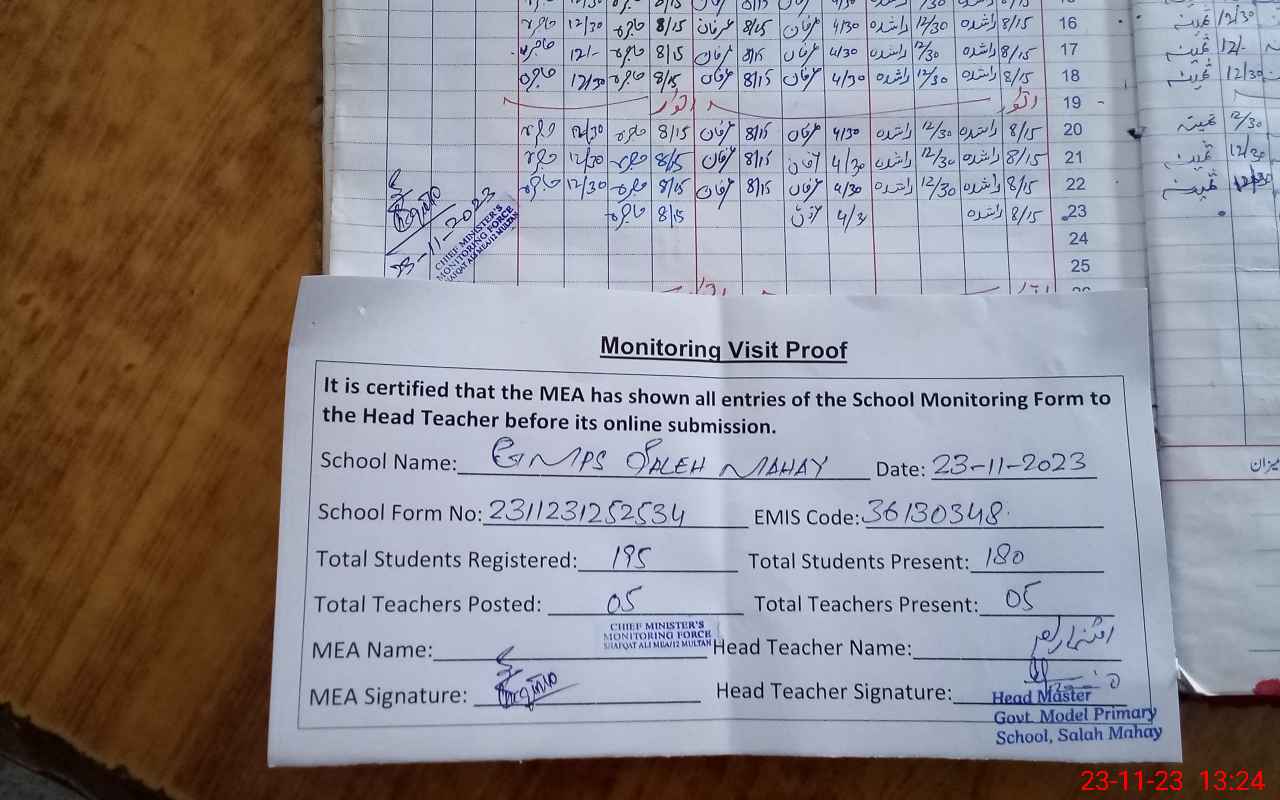 16 8/15 راشدہ 12/30 راشدہ 4/30 عرفان 8/15 عرفان 8/15 حاجرہ 12/30 حاجرہ
17 8/15 راشدہ 12/30 راشدہ 4/30 عرفان 8/15 عرفان 8/15 حاجرہ 12/- حاجرہ
18 8/15 راشدہ 12/30 راشدہ 4/30 عرفان 8/15 عرفان 8/15 حاجرہ 12/30 حاجرہ
19 اتوار اتوار
20 8/15 راشدہ 12/30 راشدہ 4/30 عرفان 8/15 عرفان 8/15 حاجرہ 12/30 حاجرہ
21 8/15 راشدہ 12/30 راشدہ 4/30 8/15 عرفان 8/15 حاجرہ 12/30 حاجرہ
22 8/15 راشدہ 12/30 راشدہ 4/30 عرفان 8/15 عرفان 8/15 حاجرہ 12/30 حاجرہ
23 8/15 راشدہ 4/3 8/15 حاجرہ
24
25
23-11-2023
CHIEF MINISTER'S
MONITORING FORCE
SHAFQAT ALI MEA/12 MULTAN
12/30
12/-
12/30
12/30
12/30
میزان
Monitoring Visit Proof
It is certified that the MEA has shown all entries of the School Monitoring Form to
the Head Teacher before its online submission.
School Name: GMPS SALEH MAHAY Date: 23-11-2023
School Form No: 2311231252534 EMIS Code: 36130348
Total Students Registered: 195 Total Students Present: 180
Total Teachers Posted: 05 Total Teachers Present: 05
CHIEF MINISTER'S
MONITORING FORCE
SHAFQAT ALI MEA/12 MULTAN
MEA Name: Head Teacher Name:
MEA Signature: Head Teacher Signature:
Head Master
Govt. Model Primary
School, Salah Mahay
23-11-23 13:24